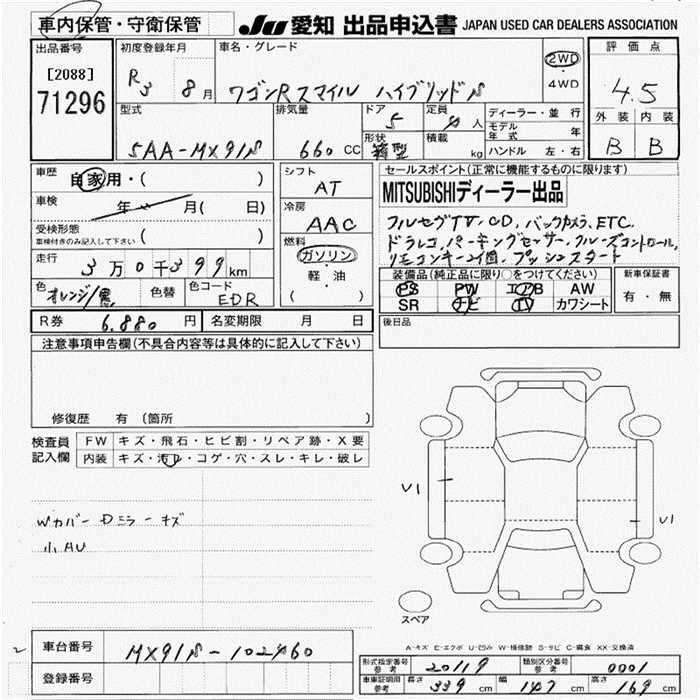 車内保管・守衛保管
JU 愛知 出品申込書 JAPAN USED CAR DEALERS ASSOCIATION
出品番号
[2088]
71296
初度登録年月
R3 8月
車名・グレード
ワゴンR スマイル ハイブリッドS
2WD
・
4WD
評価点
4.5
外装 内装
B B
型式
5AA-MX91S
排気量
660 CC
ドア
5
定員
4人
形状
箱型
積載
kg
ディーラー・並行
モデル年式 年
ハンドル 左・右
車歴
自家用・( )
車検
年 月( 日)
受検形態
車検付きのみ記入して下さい ( )
走行
3万0千399km
色
オレンジ/黒
色替
色コード
EDR
シフト
AT
冷房
AAC
燃料
ガソリン
軽・油
( )
セールスポイント(正常に機能するものに限ります)
MITSUBISHIディーラー出品
フルセグTV、CD、バックカメラ、ETC、
ドラレコ、パーキングセンサー、クルーズコントロール、
リモコンキー2個、プッシュスタート
装備品(純正品に限り○をつけてください)
PS PW エアB AW
SR ナビ TV カワシート
新車保証書
有・無
R券 6,880円 名変期限 月 日
後日品
注意事項申告欄(不具合内容等は具体的に記入して下さい)
修復歴 有(箇所 )
検査員記入欄
FW キズ・飛石・ヒビ割・リペア跡・X要
内装 キズ・汚れ・コゲ・穴・スレ・キレ・破レ
Wカバー Dミラーキズ
小AU
U1
U1
スペア
A-キズ E-エクボ U-凹み W-補修跡 S-サビ C-腐食 XX-交換済
車台番号 MX91S-102460
登録番号
型式指定番号 参考 20119
類別区分番号 参考 0001
車庫証明用 参考 長さ 339cm 幅 147cm 高さ 169cm